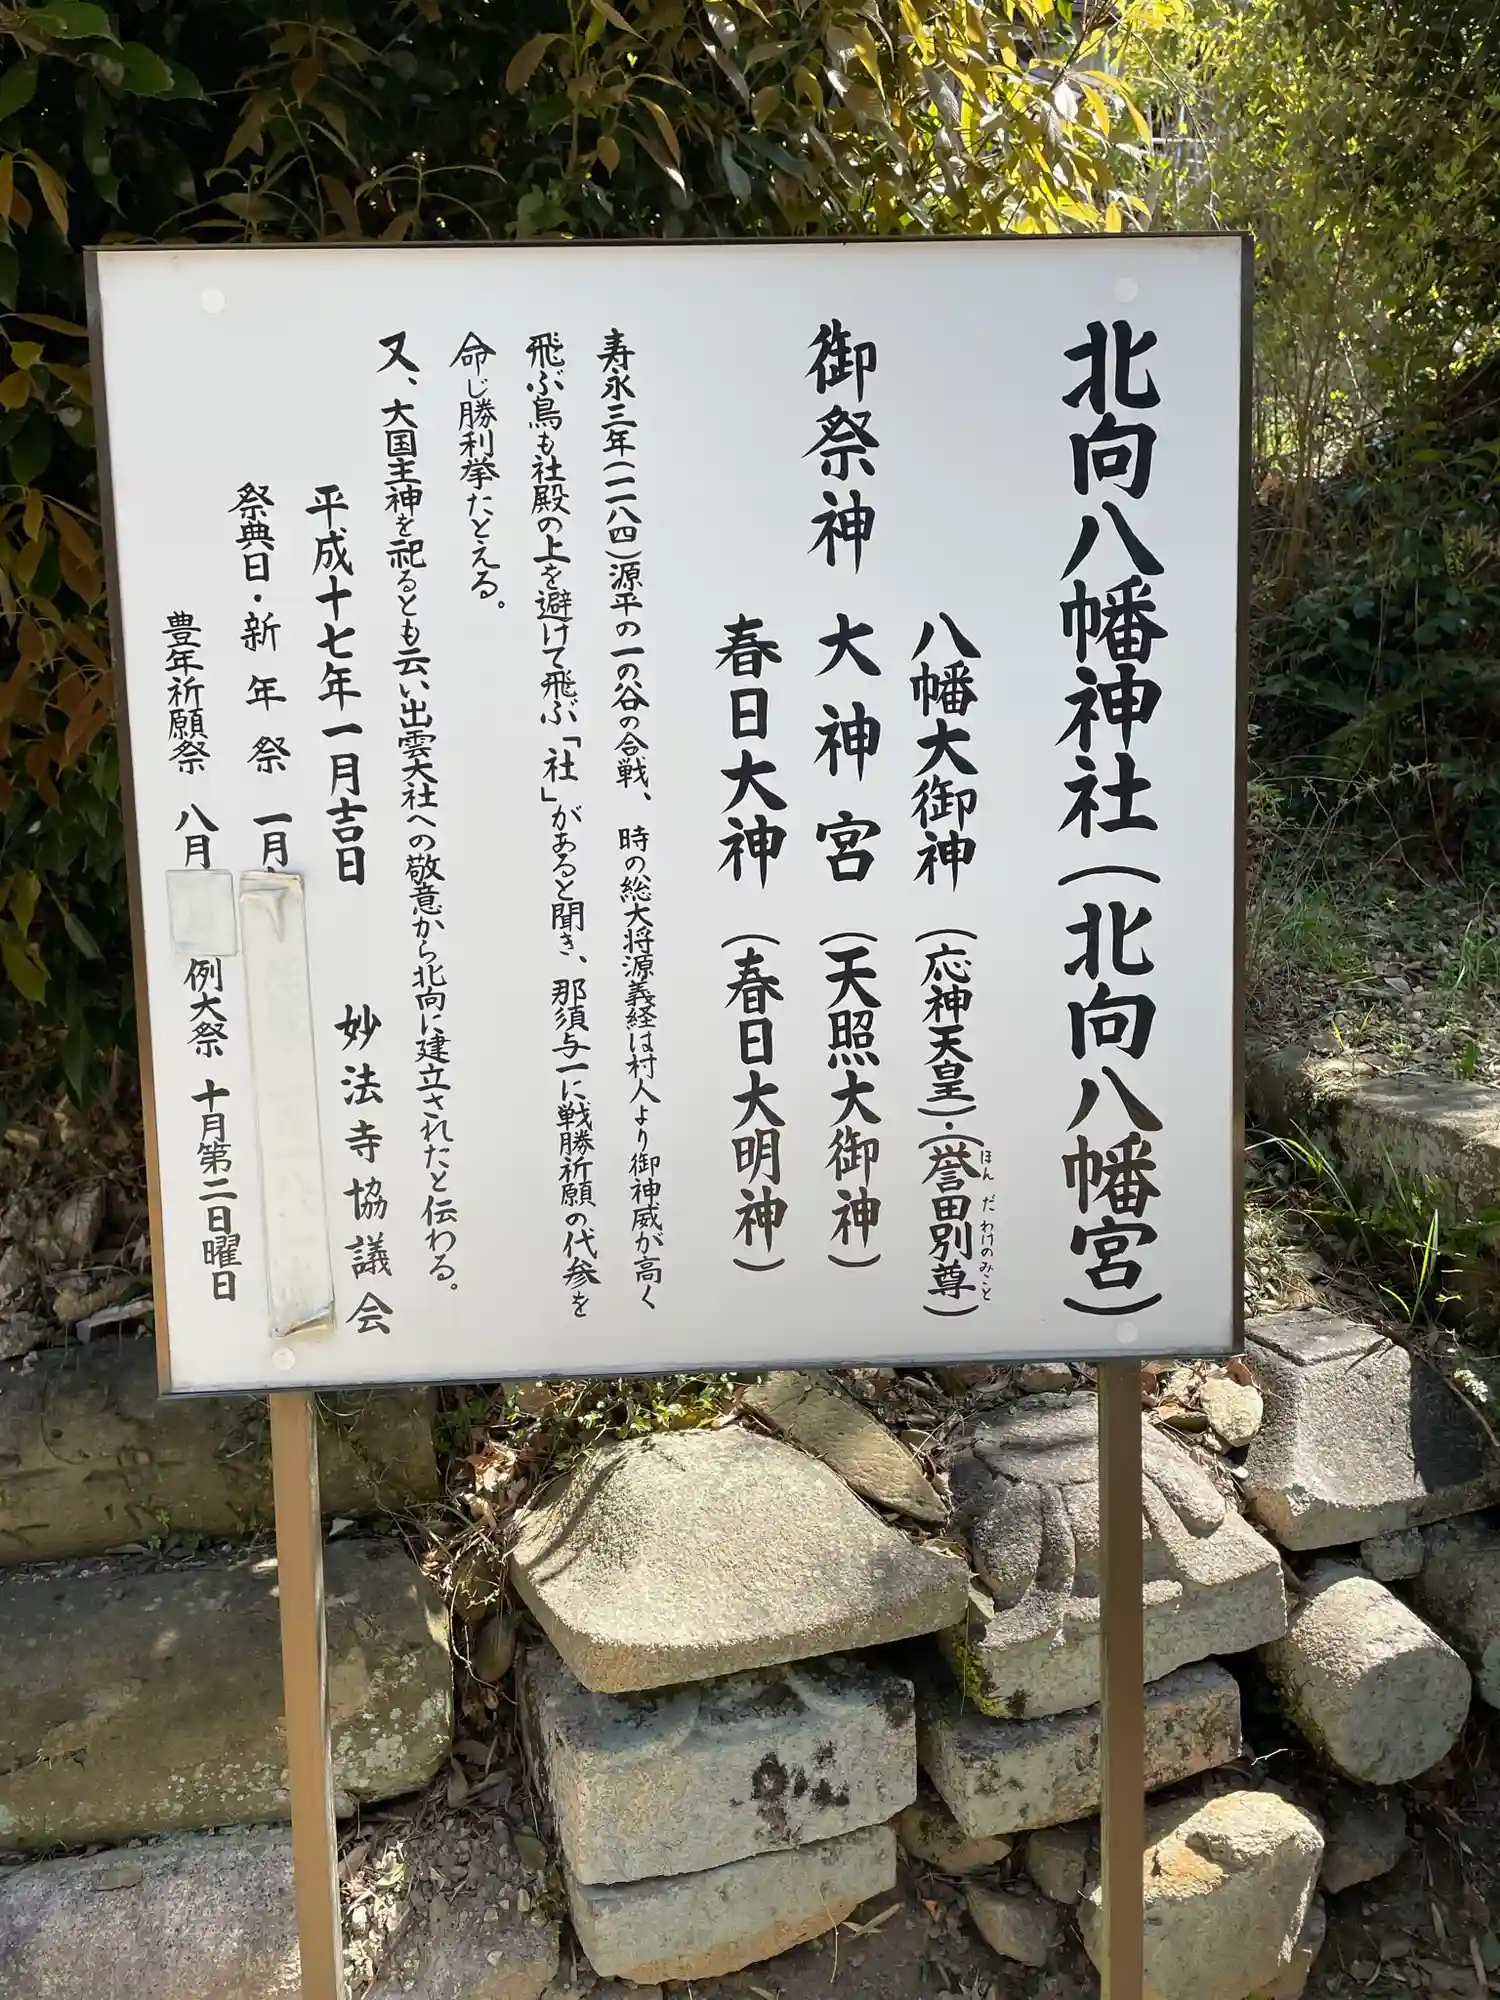 北向八幡神社(北向八幡宮)
八幡大御神(応神天皇)・(誉田別尊)
ほんだわけのみこと
御祭神 大神宮(天照大御神)
春日大神(春日大明神)
寿永三年(一一八四)源平の一の谷の合戦、時の総大将源義経は村人より御神威が高く
飛ぶ鳥も社殿の上を避けて飛ぶ「社」があると聞き、那須与一に戦勝祈願の代参を
命じ勝利挙たとえる。
又、大国主神を祀るとも云い出雲大社への敬意から北向に建立されたと伝わる。
平成十七年一月吉日 妙法寺協議会
祭典日・新年祭 一月
豊年祈願祭 八月 例大祭 十月第二日曜日